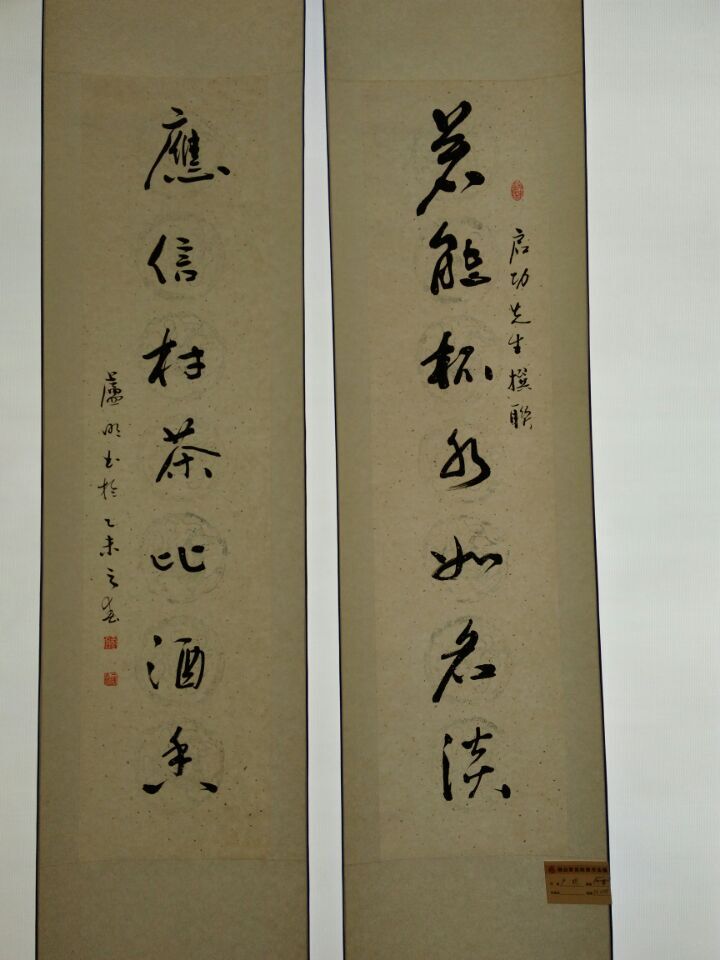 若能杯水如名淡
启功先生撰联
應信村茶比酒香
蘆明书於乙未之春